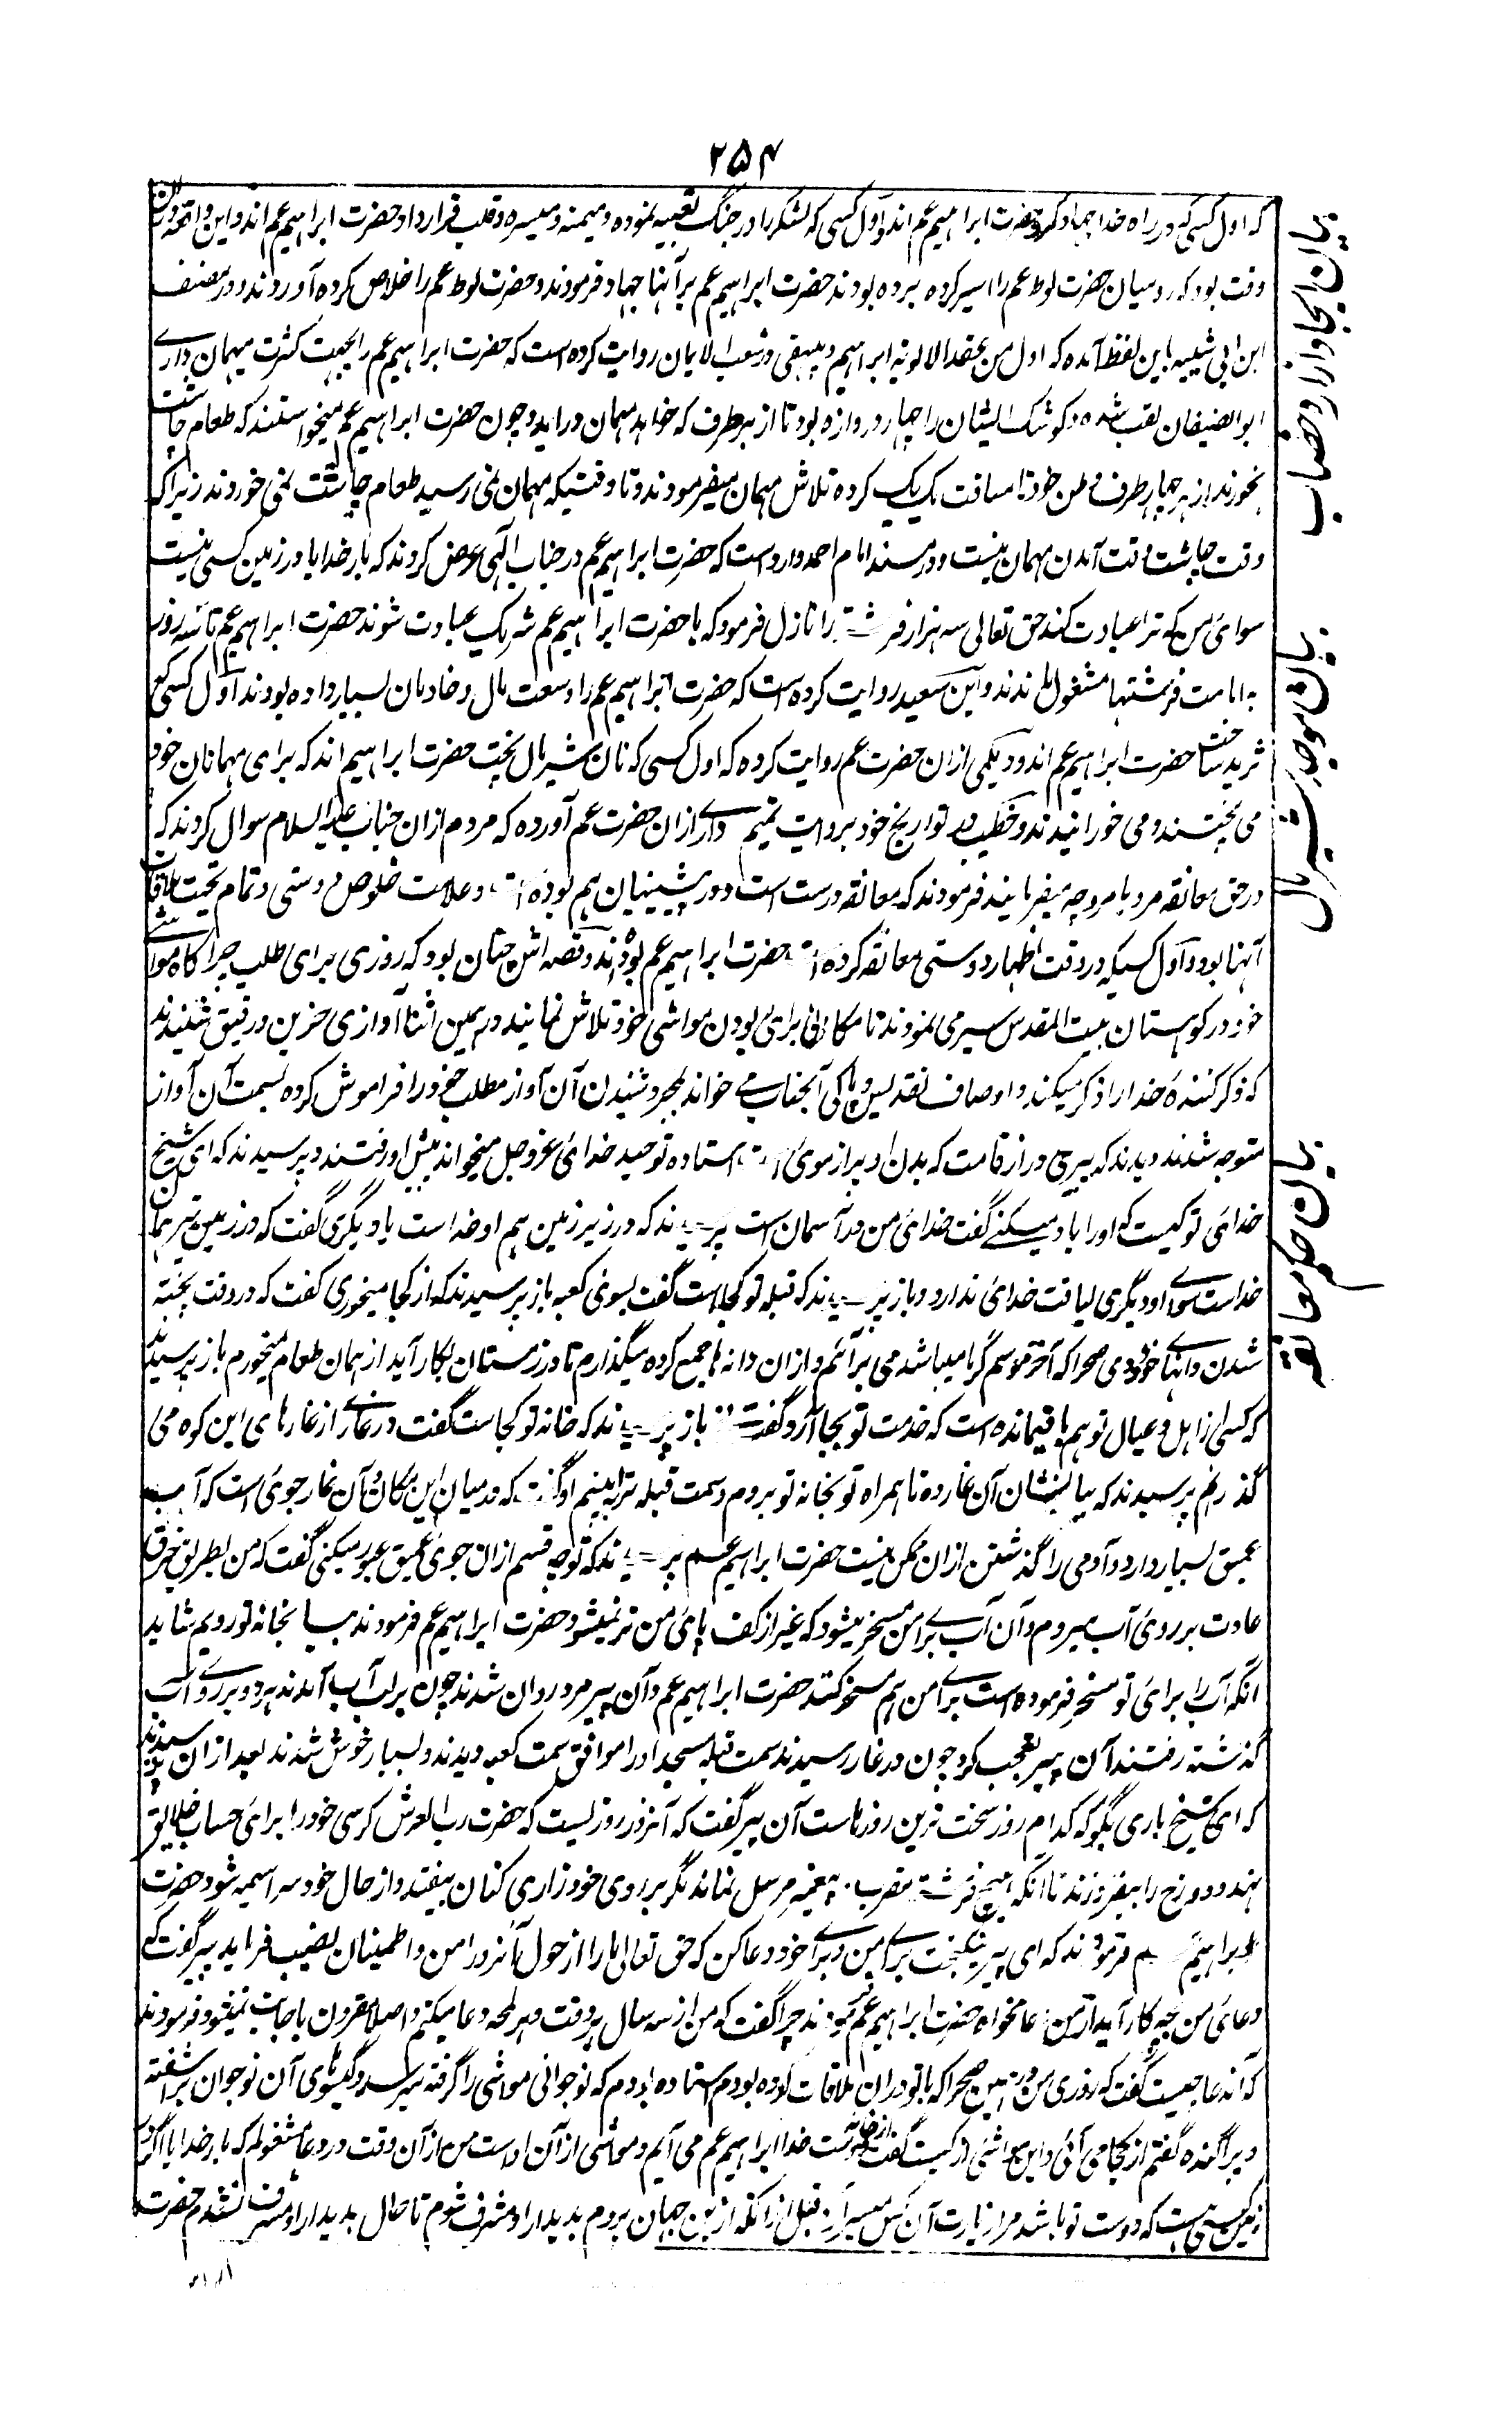 ۲۵۴
که اول کسی که در راه خدا جهاد کرد حضرت ابراهیم عم اند و اول کسی که لشکر را در جنگ تعبیه نموده و میمنه و میسره و قلب قرار داد حضرت ابراهیم عم اند و این واقعه در آن
وقت بود که رومیان حضرت لوط عم را اسیر کرده برده بودند حضرت ابراهیم عم بر آنها جهاد فرمودند و حضرت لوط عم را خلاص کرده آوردند و در مصنف
ابن ابی شیبه باین لفظ آمده که اول من عقد الالویة ابراهیم و بیهقی در شعب الایمان روایت کرده است که حضرت ابراهیم عم را بجهت کثرت میهمان داری
ابو الضیفان لقب شده و کوشک ایشان را چهار دروازه بود تا از هر طرف که خواهد مهمان در اید و چون حضرت ابراهیم عم میخواستند که طعام چاشت
بخورند از هر چهار طرف وطن خود تا مسافت یک یک کرده تلاش مهمان میفرمودند و تا وقتیکه مهمان نمی رسید طعام چاشت نمی خوردند زیرا که
وقت چاشت وقت آمدن مهمان نیست و در مسند امام احمد وارد است که حضرت ابراهیم عم در جناب الهی عرض کردند که بار خدایا در زمین کسی نیست
سوائ من که ترا عبادت کند حق تعالی سه هزار فرشته را نازل فرمود که با حضرت ابراهیم عم شریک عبادت شوند حضرت ابراهیم عم تا سه روز
به امامت فرشتها مشغول ماندند و ابن سعید روایت کرده است که حضرت ابراهیم عم را وسعت مال و خادمان بسیار داده بودند اول کسی که
ثرید ساخت حضرت ابراهیم عم اند و دیلمی از ان حضرت عم روایت کرده که اول کسی که نان شیرمال پخت حضرت ابراهیم اند که برای مهمانان خود
می پختند و می خورانیدند و خطیب در تواریخ خود بروایت تمیم داری از ان حضرت عم آورده که مردم از ان جناب علیه السلام سوال کردند که
در حق معانقه مرد با مرد چه میفرمایند فرمودند که معانقه درست است و در پیشینیان هم بوده است و علامت خلوص دوستی و تمام تحیت ملاقات
آنها بود و اول کسیکه در وقت اظهار دوستی معانقه کرده است حضرت ابراهیم عم بوده اند و قصه اش چنان بود که روزی برای طلب چراگاه مواشی
خود در کوهستان بیت المقدس سیر می نمودند تا مکانی برای بودن مواشی خود تلاش نمایند در همین اثنا آوازی حزین و رقیق شنیدند
که ذکر کننده خدا را ذکر میکند و اوصاف تقدیس و پاکی آنجناب می خواند بمجرد شنیدن آن آواز مطلب خود را فراموش کرده بسمت آن آواز
متوجه شدند دیدند که پیری دراز قامت که بدن او پر از موی است استاده توحید خدائ عزوجل میخواند پیش او رفتند و پرسیدند که ای شیخ
خدای تو کیست که او را یاد میکنی گفت خدائ من در آسمان است پرسیدند که در زیر زمین هم او خداست یا دیگری گفت که در زمین نیز همان
خداست سوای او دیگری لیاقت خدائ ندارد و باز پرسیدند که قبله تو کجاست گفت بسوی کعبه باز پرسیدند که از کجا میخوری گفت که در وقت پخته
شدن دانهای خودروی صحرا که آخر موسم گرما میباشد می برآئم و ازان دانه ها جمع کرده میگذارم تا در زمستان بکار آید از همان طعام میخورم باز پرسیدند
که کسی از اهل و عیال تو هم باقیمانده است که خدمت تو بجا آرد گفت نه باز پرسیدند که خانه تو کجاست گفت در غاری از غارهای این کوه می
گذرانم پرسیدند که بیا نشان آن غار ده تا همراه تو بخانه تو بروم و سمت قبله ترا بینم او گفت که در میان این مکان و آن غار جوی است که آب
عمیق بسیار دارد و آدمی را گذشتن ازان ممکن نیست حضرت ابراهیم عم پرسیدند که تو چه قسم ازان جوی عمیق عبور میکنی گفت که من بطریق خرق
عادت بر روی آب میروم و آن آب برای من مسخر میشود که غیر از کف پای من تر نمیشود حضرت ابراهیم عم فرمودند بیا بخانه تو رویم شاید
آنکه آب را برائ تو مسخر فرموده است برای من هم مسخر کند حضرت ابراهیم عم و آن پیر مرد روان شدند چون بر لب آب آمدند هر دو بر روی آب
گذشته رفتند آن پیر تعجب کرد چون در غار رسیدند سمت قبله مسجد او را موافق سمت کعبه دیدند و بسیار خوش شدند بعد ازان پرسیدند
که ای شیخ باری بگو که کدام روز سخت ترین روزهاست آن پیر گفت که آنروز روزیست که حضرت رب العرش کرسی خود را برائ حساب خلایق
نهند و دوزخ را بیفروزند تا آنکه هیچ فرشته مقرب پیغمبر مرسل نماند مگر بر روی خود زاری کنان بیفتد و از حال خود سراسیمه شود حضرت
ابراهیم عم فرمودند که ای پیر نیکبخت برای من و برای خود دعا کن که حق تعالی ما را از هول آنروز امن و اطمینان نصیب فرماید پیر گفت که
دعائ من چه کار آید از من دعا مخواه حضرت ابراهیم عم فرمودند چرا گفت که من از سه سال هر وقت و هر لمحه دعا میکنم و اصلا مقرون باجابت نمیشود فرمودند
که آن دعا چیست گفت که روزی من در همین صحرا که با تو در ان ملاقات کرده بودم استاده بودم که نوجوانی مواشی را گرفته میرسد و گیسوهای آن نوجوان براشفته
و پراگنده گفتم از کجا می آئی و این مواشی از کیست گفت از خانه دوست خدا ابراهیم عم می آیم و مواشی از آن اوست من از آن وقت در دعا مشغولم که بار خدایا اگر در
زمین کسی هست که دوست تو باشد مرا زیارت آن کس میسر آر قبل از انکه ازین جهان بروم بدیدار او مشرف شوم تا حال بدیدار او مشرف نشدم حضرت
بیان حکم معانقه